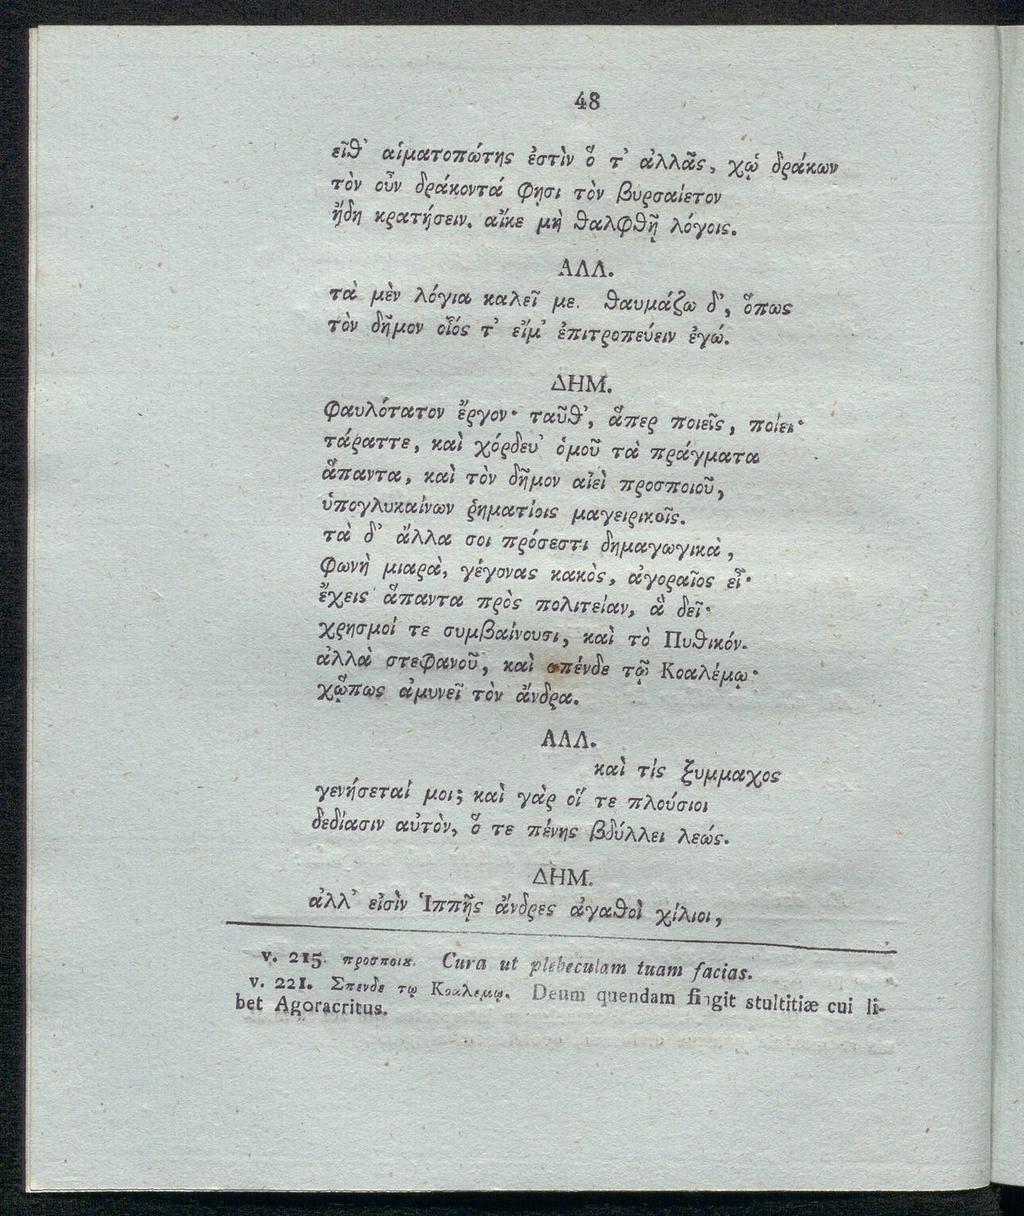 48
εἶθ' αἱματοπώτης ἐστὶν ὅ τ' ἀλλᾶς, χᾠ δράκων
τὸν οὖν δράκοντά φησι τὸν βυρσαίετον
ἤδη κρατήσειν, αἴκε μὴ θαλφθῇ λόγοις.
ΑΛΛ.
τὰ μὲν λόγια καλεῖ με. θαυμάζω δ', ὅπως
τὸν δῆμον οἷός τ' εἴμ' ἐπιτροπεύειν ἐγώ.
ΔΗΜ.
φαυλότατον ἔργον· ταῦθ', ἅπερ ποιεῖς, ποίει·
τάραττε, καὶ χόρδευ' ὁμοῦ τὰ πράγματα
ἅπαντα, καὶ τὸν δῆμον αἰεὶ προσποιοῦ,
ὑπογλυκαίνων ῥηματίοις μαγειρικοῖς.
τὰ δ' ἄλλα σοι πρόσεστι δημαγωγικὰ,
φωνὴ μιαρὰ, γέγονας κακὸς, ἀγοραῖος εἶ·
ἔχεις ἅπαντα πρὸς πολιτείαν, ἃ δεῖ·
χρησμοί τε συμβαίνουσι, καὶ τὸ Πυθικόν.
ἀλλὰ στεφανοῦ, καὶ σπένδε τῷ Κοαλέμῳ·
χᾦπως ἀμυνεῖ τὸν ἄνδρα.
ΑΛΛ.
καὶ τίς ξυμμαχος
γενήσεταί μοι; καὶ γὰρ οἵ τε πλούσιοι
δεδίασιν αὐτὸν, ὅ τε πένης βδύλλει λεώς.
ΔΗΜ.
ἀλλ' εἰσὶν Ἱππῆς ἄνδρες ἀγαθοὶ χίλιοι,
v. 215. προσποιȣ. Cura ut plebeculam tuam facias.
v. 221. Σπενδε τῳ Κοαλεμῳ. Deum quendam fingit stultitiæ cui li-
bet Agoracritus.